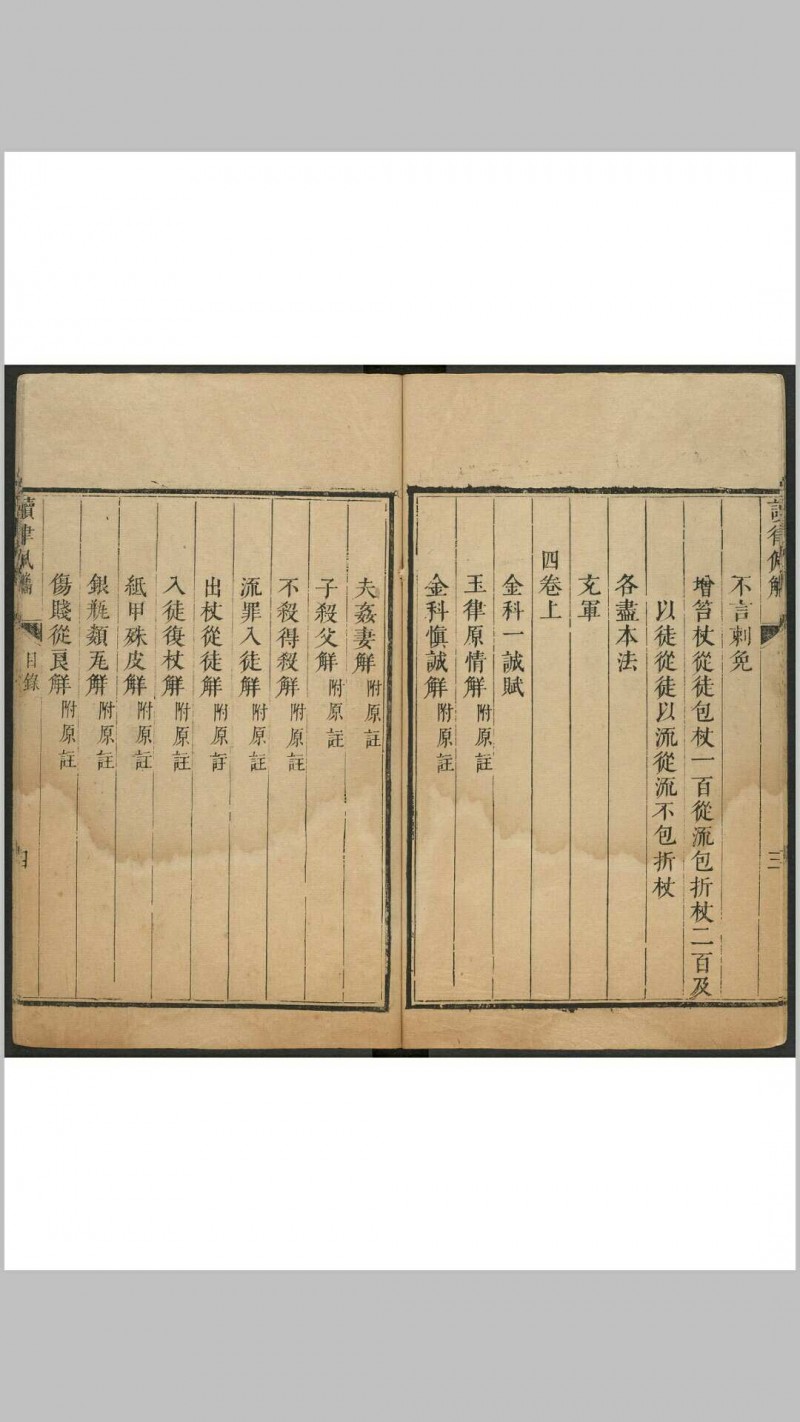 不言刺免
增笞杖從徒包杖一百從流包折杖二百及
以徒從徒以流從流不包折杖
各盡本法
充軍
四卷上
金科一誠賦
玉律原情解 附原註
金科慎誠解 附原註
三
夫姦妻解 附原註
子殺父解 附原註
不殺得殺解 附原註
流罪入徒解 附原註
出杖從徒解 附原註
入徒復杖解 附原註
紙甲殊皮解 附原註
銀瓶類瓦解 附原註
傷賤從良解 附原註
目錄
四